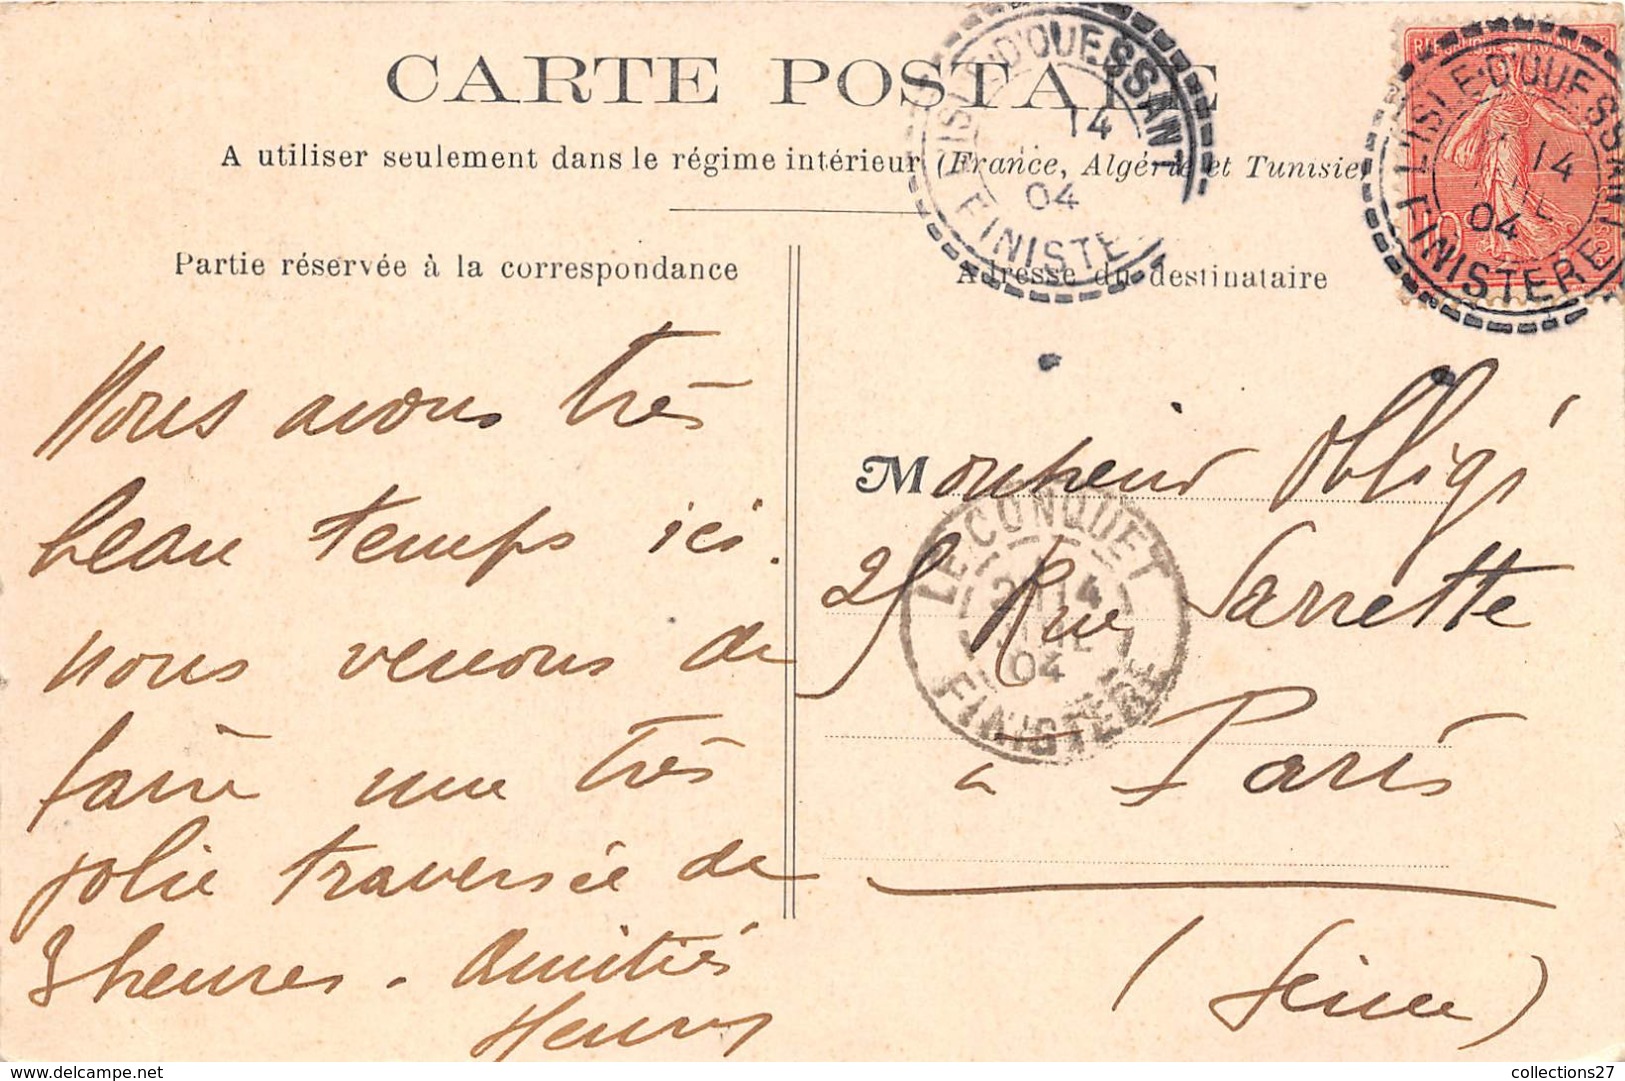 CARTE POSTALE
A utiliser seulement dans le régime intérieur (France, Algérie et Tunisie)
Partie réservée à la correspondance
Adresse du destinataire
L'ISLE D'OUESSANT
14
04
FINISTERE
REPUBLIQUE FRANÇAISE
10
L'ISLE D'OUESSANT
14
JUIL
04
FINISTERE
Nous avons très
beau temps ici.
nous venons de
faire une très
jolie traversée de
3 heures. Amitiés
Henry
Monsieur Obligi
25 Rue Sarrette
à Paris
(Seine)
LE CONQUET
14
04
FINISTERE
delcampe.net
collections27